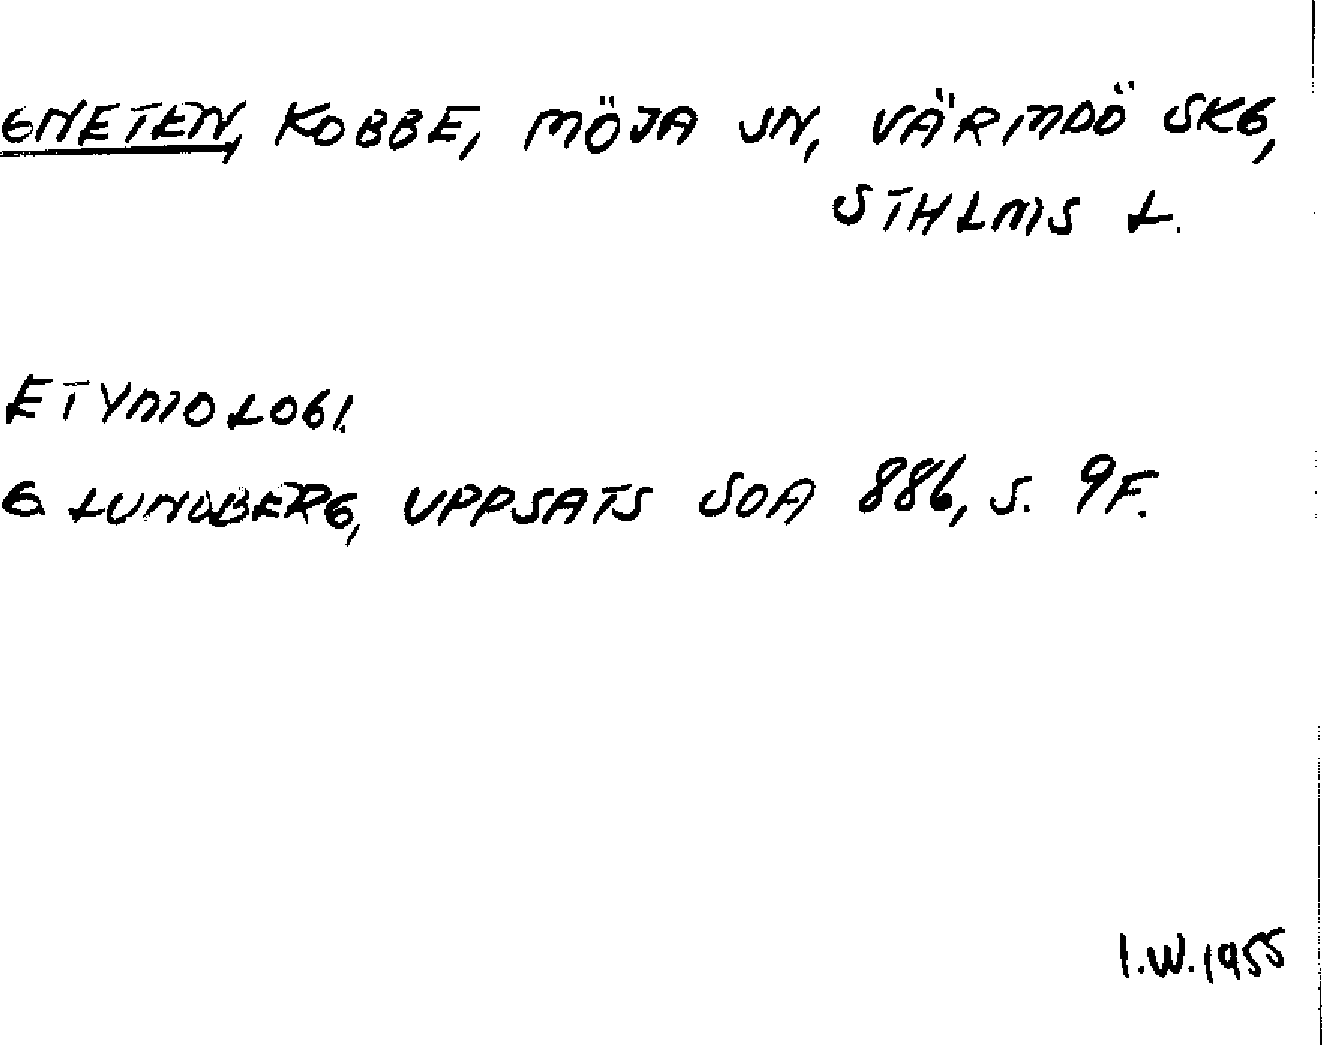 GNETEN, KOBBE, MÖJA SN, VÄRMDÖ SKG,
STHLMS L.
ETYMOLOGI.
G LUNDBERG, UPPSATS SOA 886, S. 9F.
I.W.1955